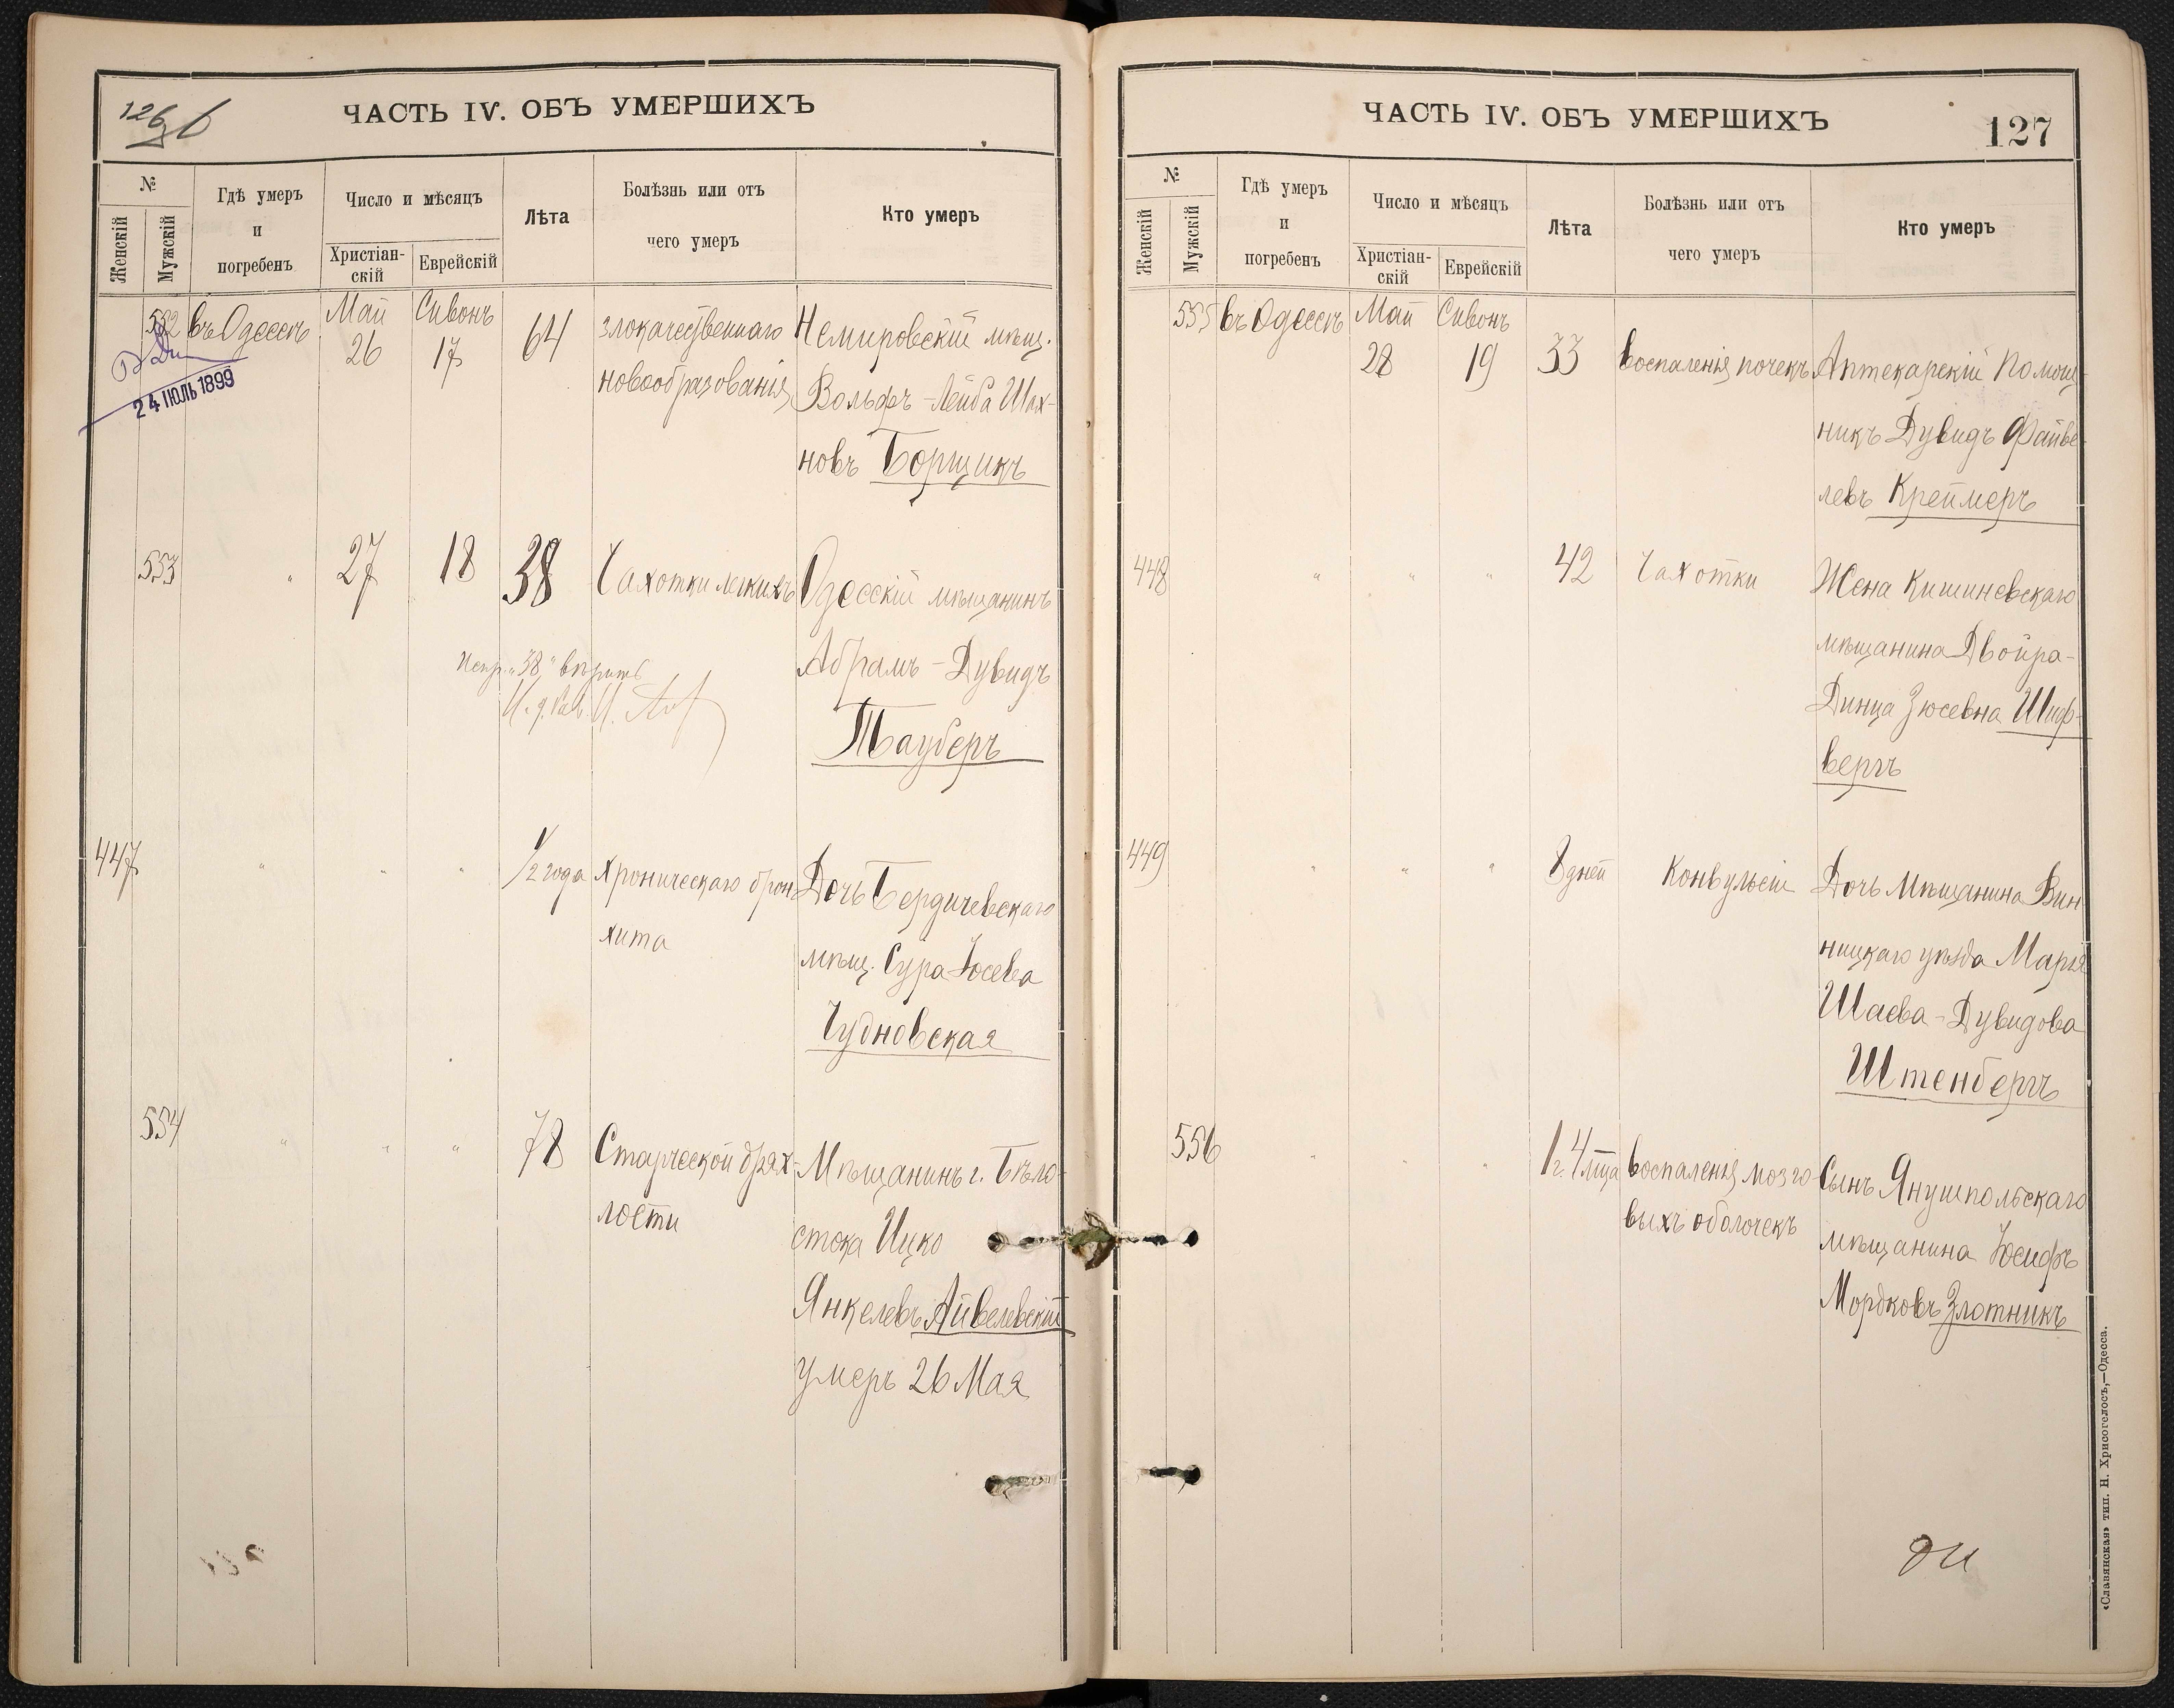 126
ЧАСТЬ IV. ОБЪ УМЕРШИХЪ
№
Женскій
Мужскій
Гдѣ умеръ
и
погребенъ
Число и мѣсяцъ
Христіан-
скій
Еврейскій
Лѣта
Болѣзнь или отъ
чего умеръ
Кто умеръ
552 въ Одессѣ Май 26 Сивонъ 17 64 злокачественнаго Немировскій мѣщ.
новообразованія Вольфъ-Лейба Шах-
новъ Борщикъ
24 ІЮЛЬ 1899
553 " 27 18 38 Чахотки легкихъ Одесскій мѣщанинъ
Абрамъ-Дувидъ
Тауберъ
Испр. "38" вѣрить
447 " " " 1/2 года Хроническаго брон- Дочь Бердичевскаго
хита мѣщ. Сура Іосева
Чудновская
554 " " " 78 Старческой дрях- Мѣщанинъ г. Бѣло-
лости стока Ицко
Янкелевъ Айвелевскій
умеръ 26 Мая
ЧАСТЬ IV. ОБЪ УМЕРШИХЪ
127
№
Женскій
Мужскій
Гдѣ умеръ
и
погребенъ
Число и мѣсяцъ
Христіан-
скій
Еврейскій
Лѣта
Болѣзнь или отъ
чего умеръ
Кто умеръ
555 въ Одессѣ Май 28 Сивонъ 19 33 Воспаленія почекъ Аптекарскій помощ-
никъ Дувидъ Файве-
левъ Креймеръ
448 " " " 42 Чахотки Жена Кишиневскаго
мѣщанина Двойра-
Динца Зюсевна Шиф-
вергъ
449 " " " 8 дней Конвульсій Дочь Мѣщанина Вин
ницкаго уѣзда Марья
Шаева-Дувидова
Штенбергъ
556 " " " 1 г. 4 мца Воспаленія мозго- Сынъ Янушпольскаго
выхъ оболочекъ мѣщанина Іосифъ
Мордковъ Злотникъ
«Славянская» тип. Н. Хрисогелосъ,—Одесса.